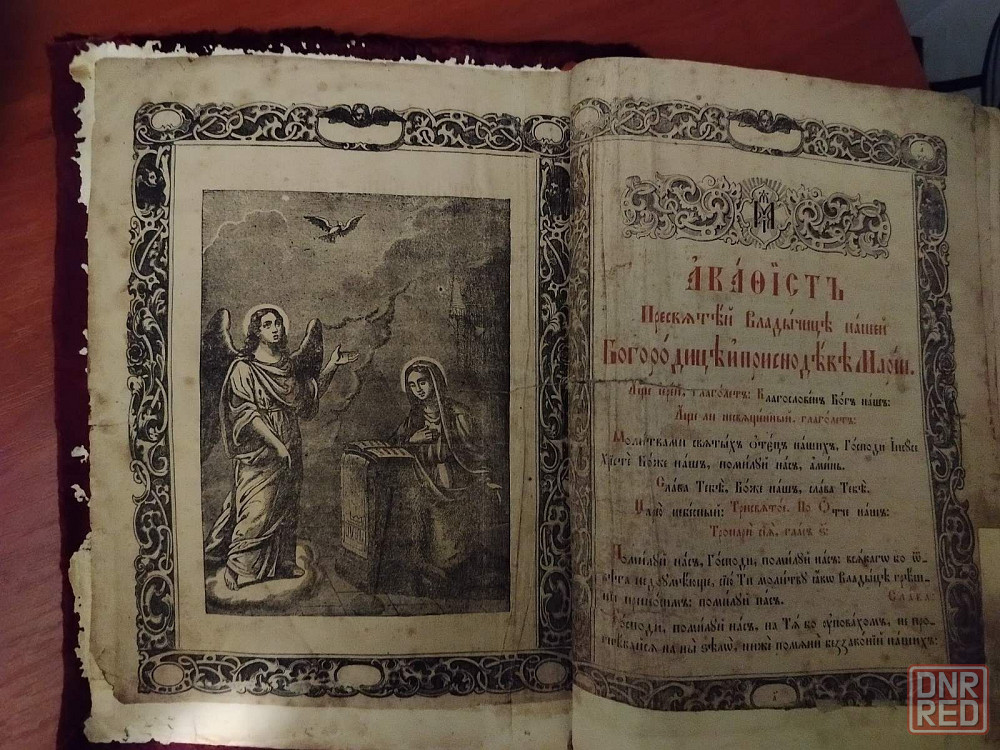 А҆ка́ѳїстъ
Пресвѧтѣ́й Влады́чицѣ на́шей
Богоро́дицѣ и҆ присноде́вѣ Марі́и.
А҆́ще і҆ере́й, глаго́летъ: Благослове́нъ Бо́гъ на́шъ:
А҆́ще ли несвѧще́нный, глаго́летъ:
Моли́твами свѧты́хъ ѻ҆те́цъ на́шихъ, Го́споди І҆исꙋ́се
Хрїстѐ Бо́же на́шъ, поми́лꙋй на́съ, а҆ми́нь.
Сла́ва Тебѣ̀, Бо́же на́шъ, сла́ва Тебѣ̀.
Царю̀ небе́сный: Трисвѧто́е. По Ѻ҆́тче на́шъ:
Тропарѝ сїѧ̑, гла́съ ѕ҃:
Поми́лꙋй на́съ, Го́споди, поми́лꙋй на́съ: всѧ́кагѡ бо ѿ-
вѣ́та недоꙋмѣ́юще, сїю̀ Тѝ моли́твꙋ ꙗ҆́кѡ Влады́цѣ грѣ́ш-
нїи прино́симъ: поми́лꙋй на́съ. Сла́ва:
Го́споди, поми́лꙋй на́съ, на Тѧ́ бо ᲂу҆пова́хомъ, не про-
гнѣ́вайсѧ на ны̀ ѕѣлѡ̀, нижѐ помѧнѝ беззако́нїй на́шихъ:
DNR
RED